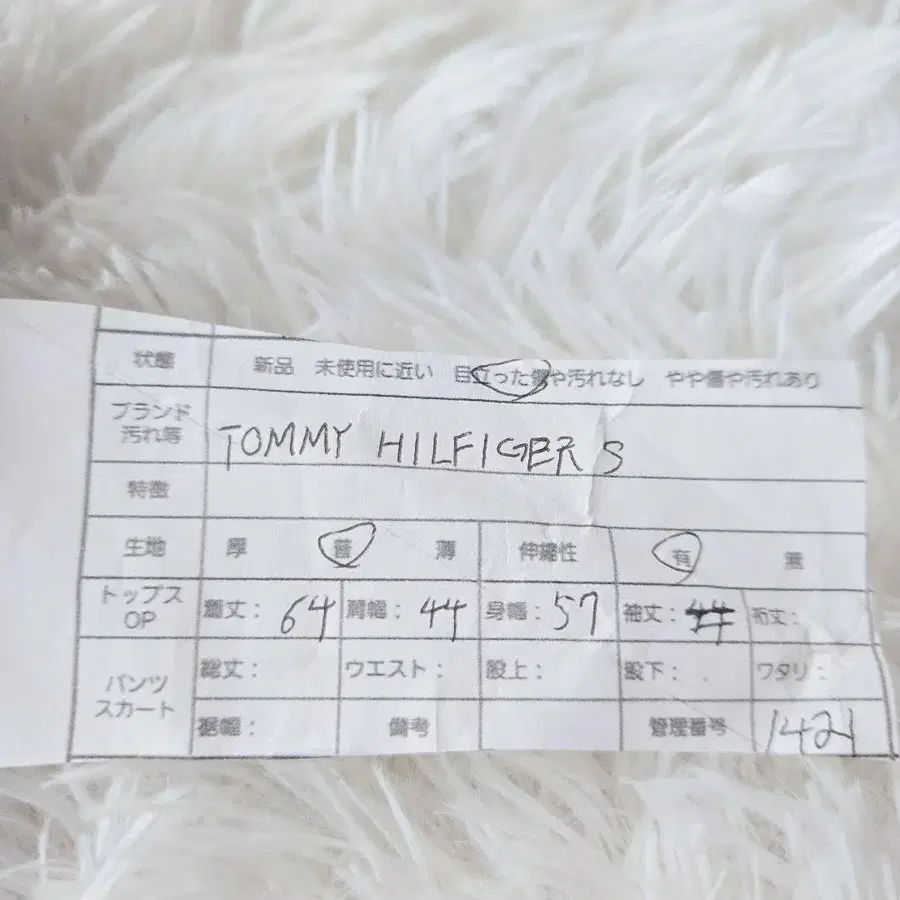 状態 新品 未使用に近い 目立った傷や汚れなし やや傷や汚れあり
ブランド
汚れ等 TOMMY HILFIGER S
特徴
生地 厚 普 薄 伸縮性 有 無
トップス
OP 着丈: 64 肩幅: 44 身幅: 57 袖丈: 裄丈:
パンツ
スカート 総丈: ウエスト: 股上: 股下: ワタリ:
裾幅: 備考 管理番号 1421